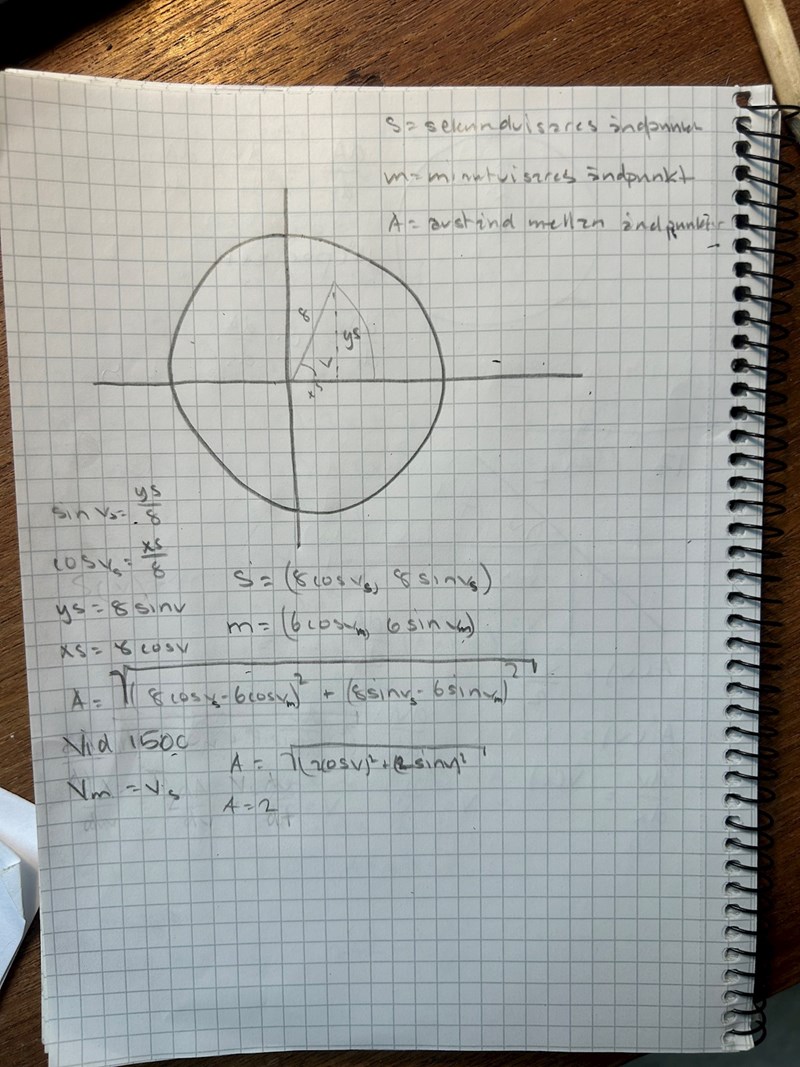 S = sekundvisares ändpunkt
m = minutvisares ändpunkt
A = avstånd mellan ändpunkter
8
ys
v
xs
sin vₛ = ys/8
cos vₛ = xs/8
S = (8 cos vₛ, 8 sin vₛ)
ys = 8 sin v
m = (6 cos vₘ, 6 sin vₘ)
xs = 8 cos v
A = √((8 cos vₛ - 6 cos vₘ)² + (8 sin vₛ - 6 sin vₘ)²)
Vid 1500
A = √((2cos v)² + (2 sin v)²
Vm = Vs
A = 2